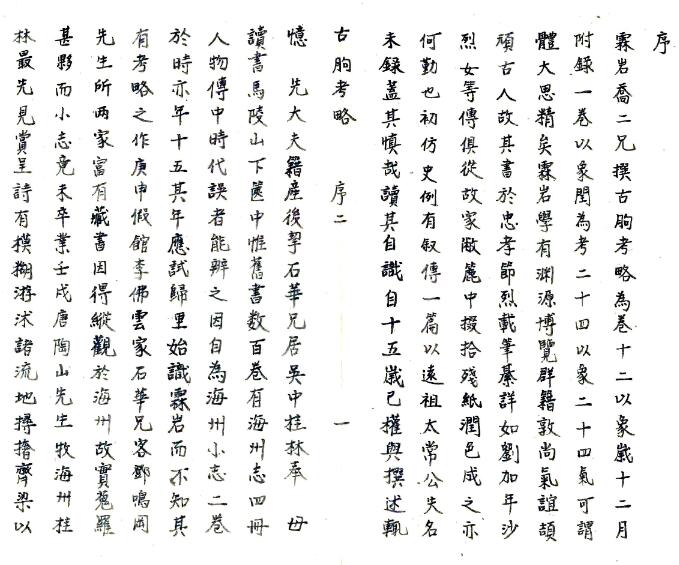 序
霖岩喬二兄撰古朐考略為卷十二以象歲十二月
附錄一卷以象閏為考二十四以象二十四氣可謂
體大思精矣霖岩學有渊源博覽群籍敦尚氣誼頡
頑古人故其書於忠孝節烈載筆綦詳如劉加年沙
烈女等傳俱從故家敝簏中掇拾殘紙潤色成之亦
何勤也初仿史例有叙傳一篇以遠祖太常公失名
未録蓋其慎哉讀其自識自十五歲已權輿撰述輒
古朐考略 序二 一
憶 先大夫籍產後挈石華兄居吳中桂林奉 母
讀書馬陵山下篋中惟舊書数百卷有海州志四冊
人物傳中時代誤者能辨之因自為海州小志二卷
於時亦年十五其年應試歸里始識霖岩而不知其
有考略之作庚申假館李佛雲家石華兄客鄧鳴岡
先生所两家富有藏書因得縱觀於海州故實蒐羅
甚夥而小志竟未卒業壬戌唐陶山先生牧海州桂
林最先見賞呈詩有摸糊游沭諸流地撏撦齊梁以